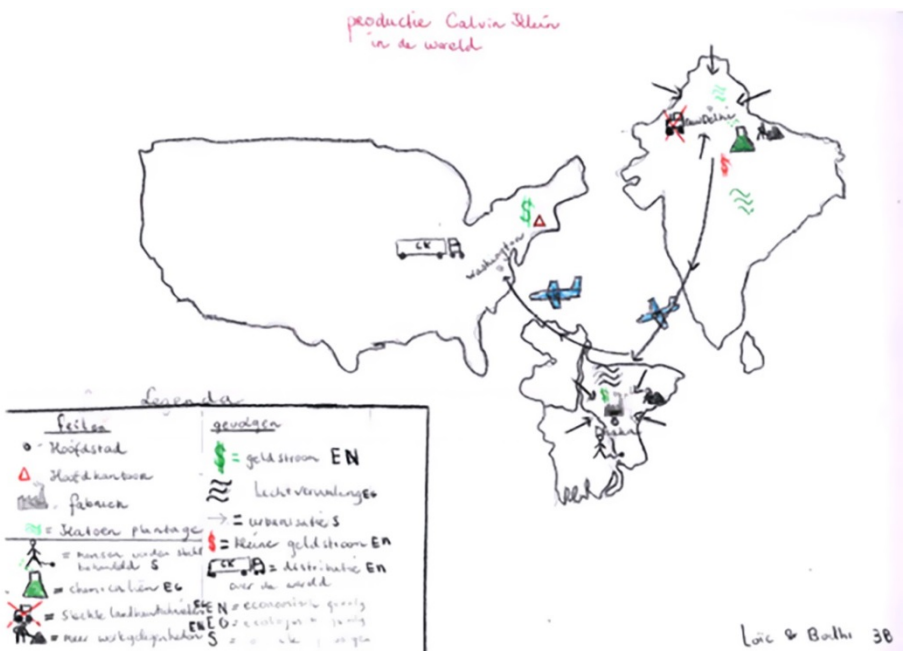 productie Calvin Klein
in de wereld
New Delhi
$
$
CK
Washington
$
Dhaka
Legenda
feiten
Hoofdstad
Hoofdkantoor
= fabriek
= Katoen plantage
= mensen worden slecht
behandeld S
= chemicaliën EG
= Slechte
= meer werkgelegenheid EN
gevolgen
$ = geldstroom EN
Luchtvervuiling EG
→ = urbanisatie S
$ = kleine geldstroom En
CK = distributie En
over de wereld
EN = economisch gevolg
EG = ecologisch gevolg
S
Loïc & Bodhi 3B